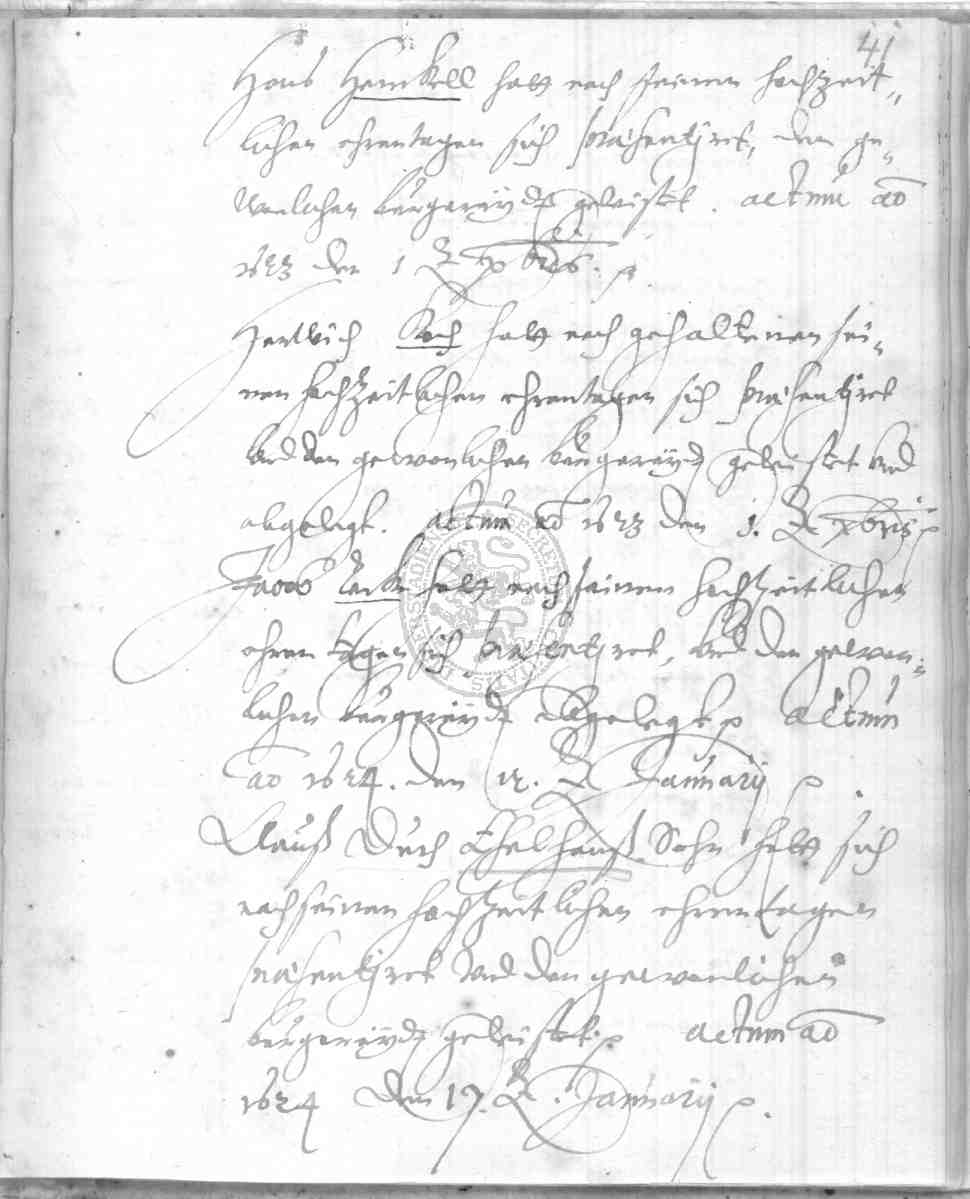 41
Hans Henckell hatt nach seinen hochzeit„
lichen ehrentagen sich praesentiret, den ge„
wonlichen bürgereÿdt geleistet. actum ao
1623 den 1 xbris.
Hartwich Koch hatt nach gehaltenen sei„
nen hochzeitlichen ehrentagen sich praesentiret
vnd den gewonlichen bürgereÿdt geleistet vnd
abgelegt. actum ao 1623 den 1. xbris
Jacob hatt nach seinen hochzeitlichen
ehren tagen sich praesentiret, vnd den gewon„
lichen bürgereÿdt abgelegt actum
ao 1624. den 12. Januarij
Clauß Sohn hatt sich
nach seinen hochzeitlichen ehrentagen
praesentiret vnd den gewonlichen
bürgereÿdt geleistet actum ao
1624 den 17. Januarij